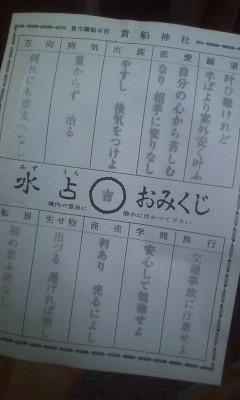 貴市鎮船本宮
貴船神社
願望
叶ひ難けれど
半ばより案外安く叶ふ
恋愛
自分の心から苦しむ
恋なり 相手に変りなし
出産
やすし 後気をつけよ
病気
重からず 治る
方向
何れにも差支へなし
みずうら
水占
吉
おみくじ
境内の霊泉に
静かに浮かべて下さい
旅行
交通事故に注意せよ
学問
安心して勉強せよ
商売
利あり 売るによし
失せ物
出づる 遅ければ無し
転居
初め思ふ所なし